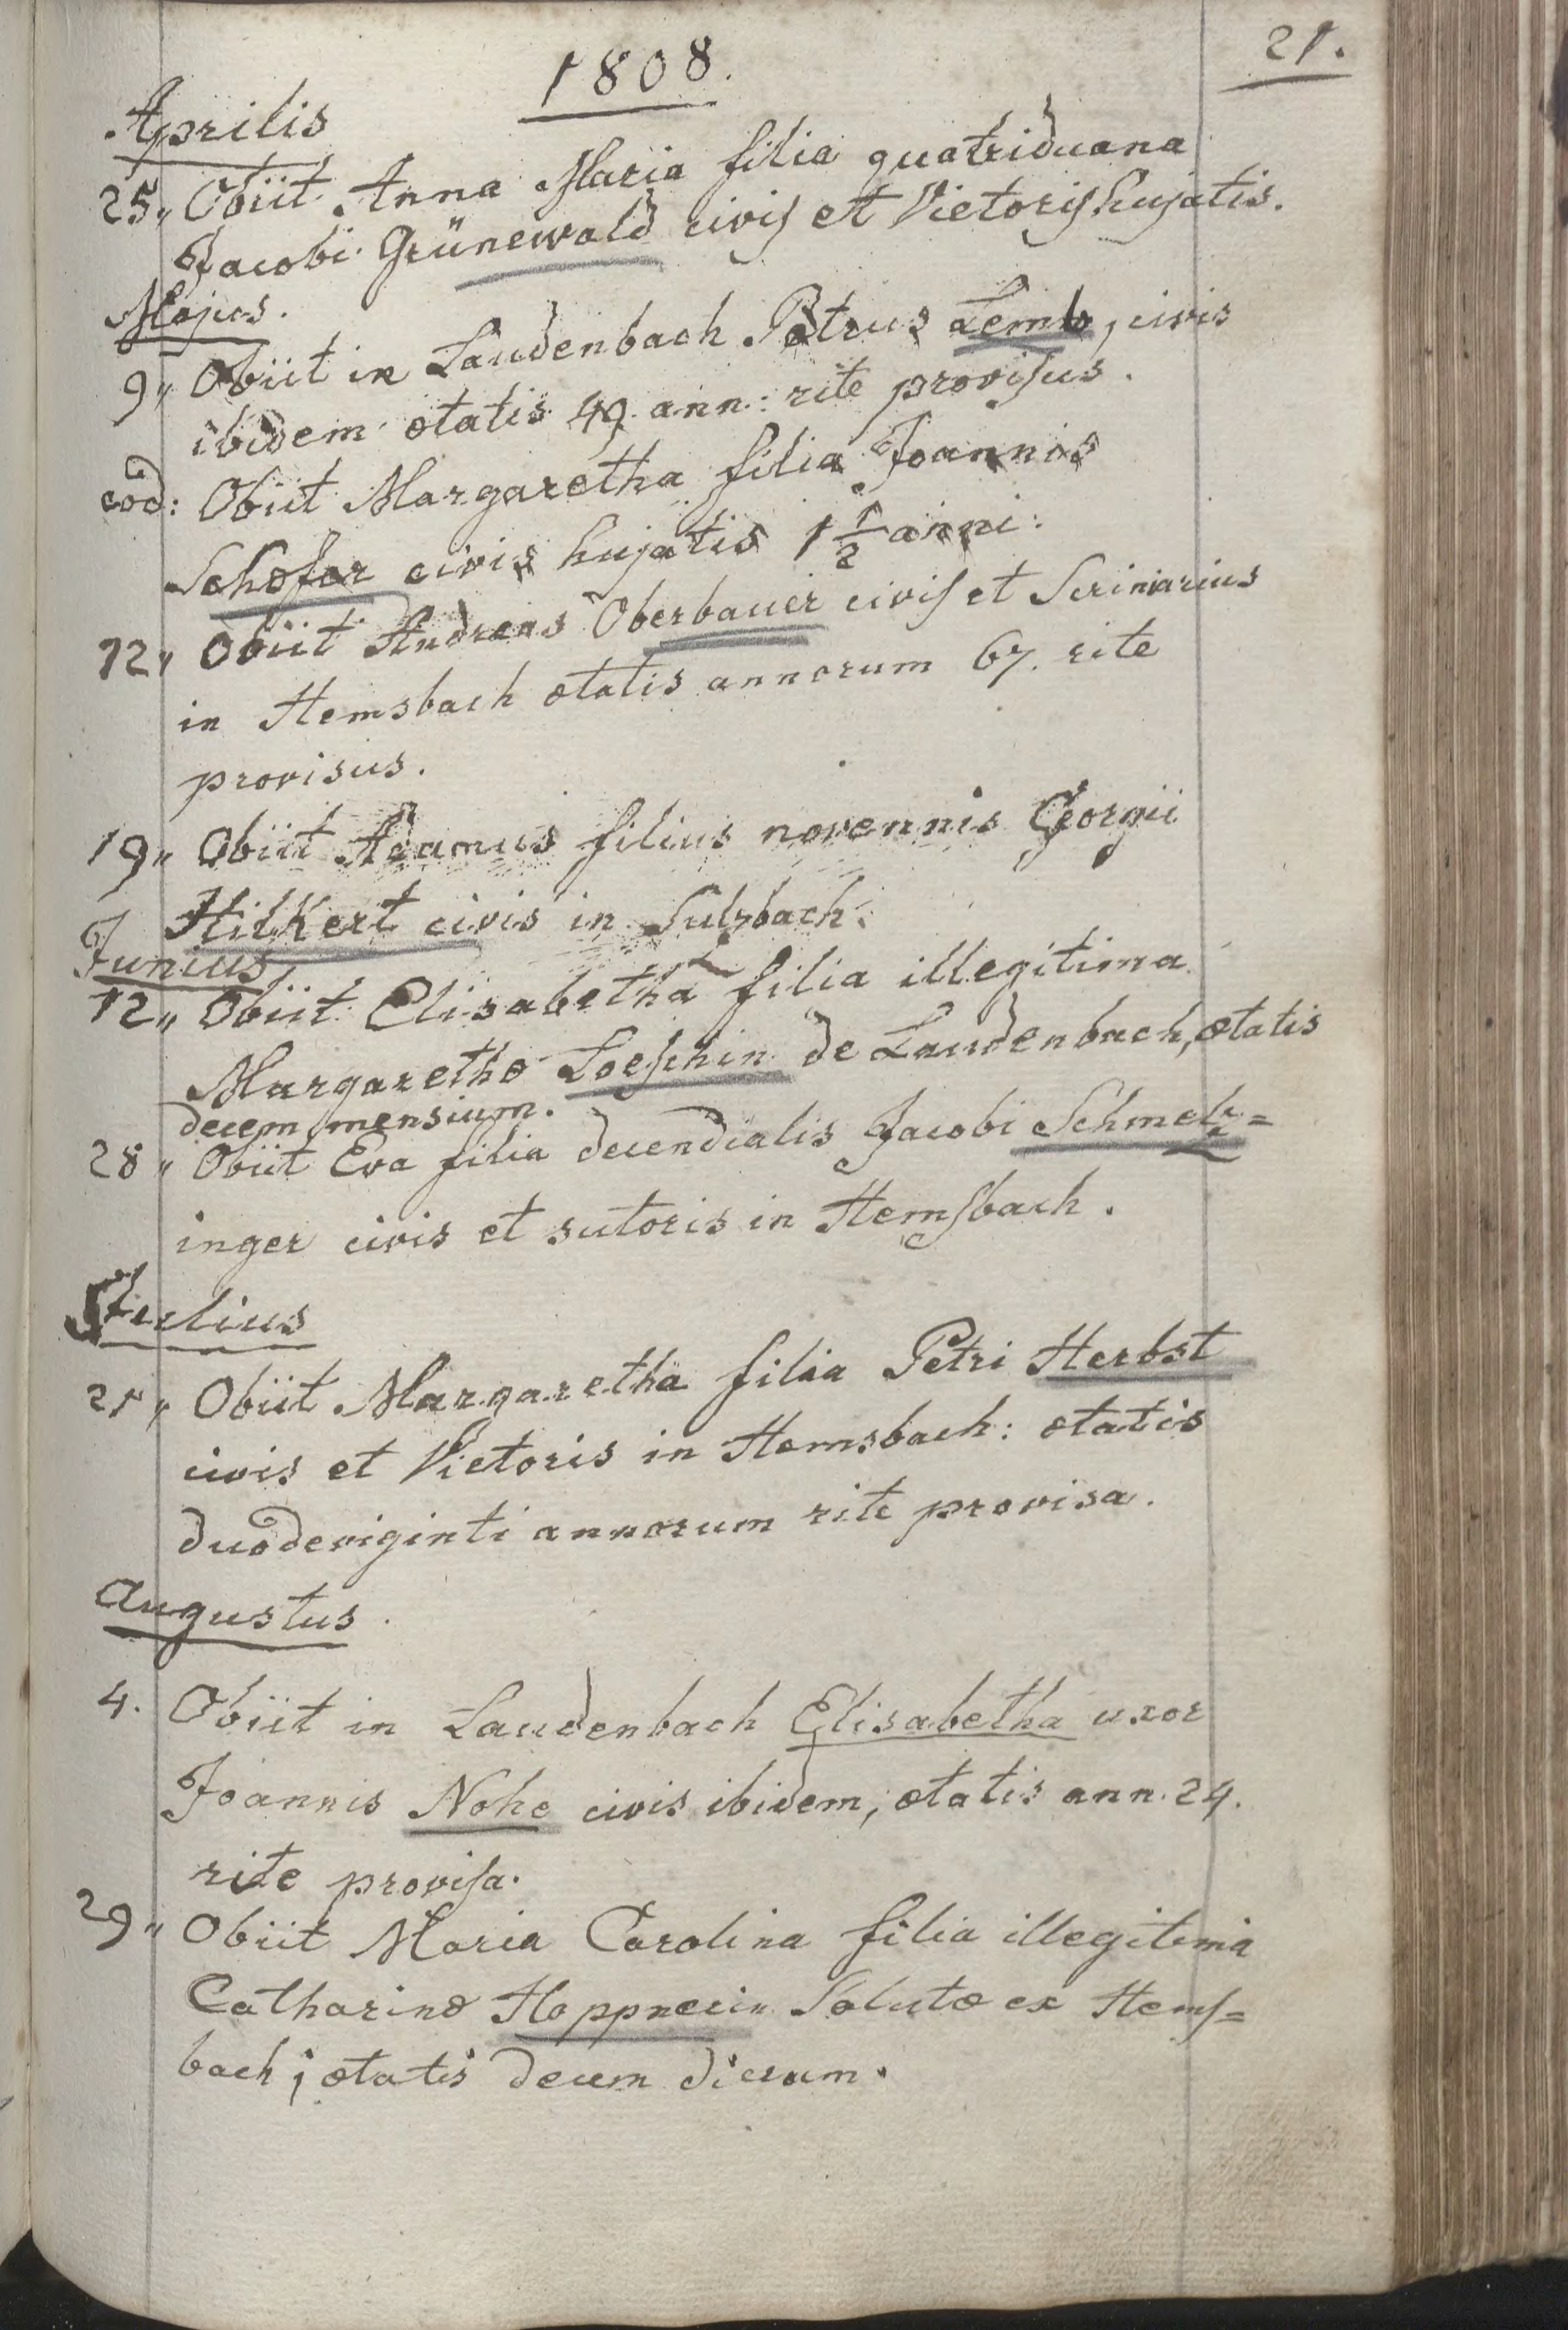 1808.
21.
Aprilis
25„ Obiit Anna Maria filia quatriduana
Jacobi Grünewald civis et Vietoris hujatis.
Majus.
9„ Obiit in Laudenbach Petrus Lemb, civis
ibidem ætatis 49. ann: rite provisus.
eod: Obiit Margaretha filia Joannis
Schæfer civis hujatis 1 1/2 anni:
12„ Obiit Andreas Oberbauer civis et Scriniarius
in Hemsbach ætatis annorum 67. rite
provisus.
19„ Obiit Adamus filius novennis Georgii
Hilkert civis in Sulzbach.
Junius
12„ Obiit Elisabetha filia illegitima
Margarethæ Loeschin de Laudenbach, ætatis
decem mensium.
28„ Obiit Eva filia decendialis Jacobi Schmelz=
inger civis et sutoris in Hemsbach.
Julius
21„ Obiit Margaretha filia Petri Herbst
civis et Vietoris in Hemsbach: ætatis
duodeviginti annorum rite provisa.
Augustus.
4. Obiit in Laudenbach Elisabetha uxor
Joannis Nohe civis ibidem, ætatis ann. 24.
rite provisa.
29„ Obiit Maria Carolina filia illegitima
Catharinæ Hoppnerin Solutæ ex Hems=
bach; ætatis decem dierum.